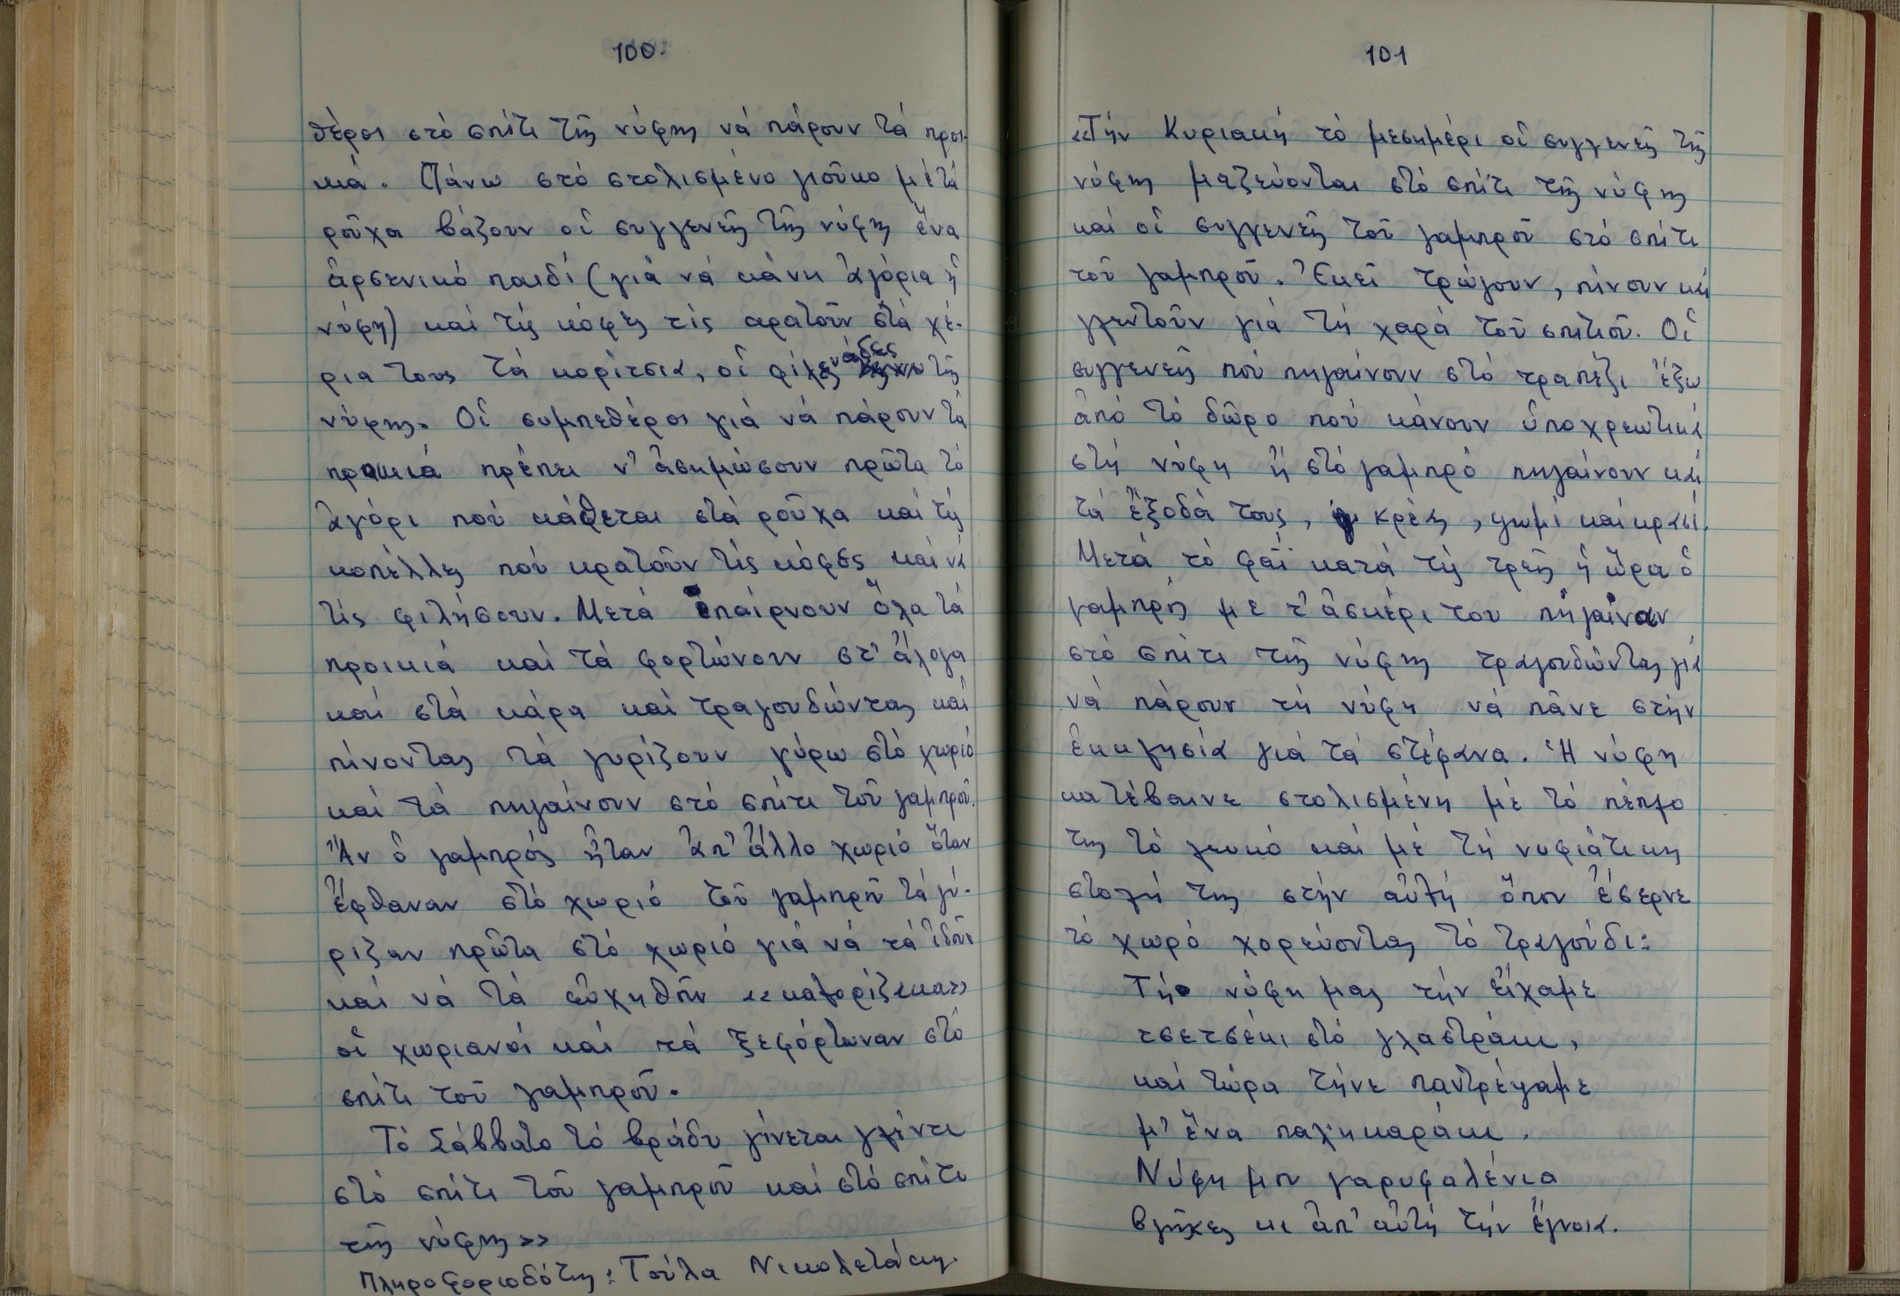 100.
θέροι στό σπίτι τῆς νύφης νά πάρουν τά προι-
κιά. Πάνω στό στολισμένο γιοῦκο μέ τά
ροῦχα βάζουν οἱ συγγενεῖς τῆς νύφης ἕνα
ἀρσενικό παιδί (γιά νά κάνη ἀγόρια ἡ
νύφη) καί τίς κόφες τίς κρατοῦν στά χέ-
ρια τους τά κορίτσια, οἱ φιλενάδες τῆς
νύφης. Οἱ συμπεθέροι γιά νά πάρουν τά
προικιά πρέπει ν' ἀσημώσουν πρῶτα τό
ἀγόρι πού κάθεται στά ροῦχα καί τίς
κοπέλλες πού κρατοῦν τίς κόφες καί νά
τίς φιλήσουν. Μετά ἐπαίρνουν ὅλα τά
προικιά καί τά φορτώνουν στ' ἄλογα
καί στά κάρα καί τραγουδώντας καί
πίνοντας τά γυρίζουν γύρω στό χωριό
καί τά πηγαίνουν στό σπίτι τοῦ γαμπροῦ.
Ἄν ὁ γαμπρός ἦταν ἀπ' ἄλλο χωριό ὅταν
ἔφθαναν στό χωριό τοῦ γαμπροῦ τά γύ-
ριζαν πρῶτα στό χωριό γιά νά τά ἰδοῦν
καί νά τά εὐχηθοῦν «καλορίζικα»
οἱ χωριανοί καί τά ξεφόρτωναν στό
σπίτι τοῦ γαμπροῦ.
Τό Σάββατο τό βράδυ γίνεται γλέντι
στό σπίτι τοῦ γαμπροῦ καί στό σπίτι
τῆς νύφης»
Πληροφοριοδότης: Τούλα Νικολετάκη.
101
«Τήν Κυριακή τό μεσημέρι οἱ συγγενεῖς τῆς
νύφης μαζεύονται στό σπίτι τῆς νύφης
καί οἱ συγγενεῖς τοῦ γαμπροῦ στό σπίτι
τοῦ γαμπροῦ. Ἐκεῖ τρώγουν, πίνουν καί
γλεντοῦν γιά τή χαρά τοῦ σπιτιοῦ. Οἱ
συγγενεῖς πού πηγαίνουν στό τραπέζι ἔξω
ἀπό τό δῶρο πού κάνουν ὑποχρεωτικά
στή νύφη ἤ στό γαμπρό πηγαίνουν καί
τά ἔξοδά τους, κρέας, ψωμί καί κρασί.
Μετά τό φαΐ κατά τίς τρεῖς ἡ ὥρα ὁ
γαμπρός με τ' ἀσκέρι του πήγαιναν
στό σπίτι τῆς νύφης τραγουδώντας γιά
νά πάρουν τή νύφη νά πᾶνε στήν
ἐκκλησία γιά τά στέφανα. Ἡ νύφη
κατέβαινε στολισμένη μέ τό πέπλο
της τό λευκό καί μέ τή νυφιάτικη
στολή της στήν αὐλή ὅπου ἔσερνε
τό χωρό χορεύοντας τό τραγούδι:
Τή νύφη μας τήν εἴχαμε
τσετσέκι στό γλαστράκι,
καί τώρα τήνε παντρέψαμε
μ' ἕνα παληκαράκι.
Νύφη μου γαρυφαλένια
βγῆκες κι ἀπ' αὐτή τήν ἔγνοια.